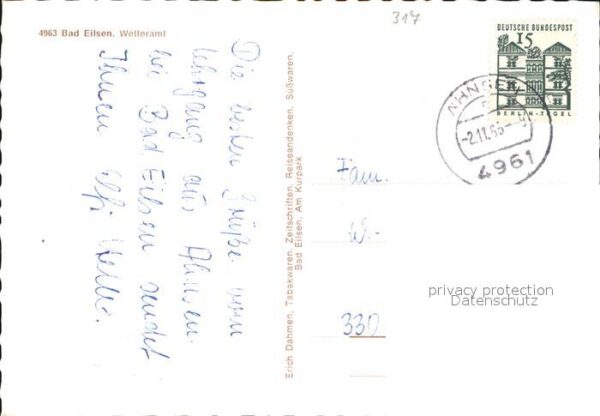 317
4963 Bad Eilsen, Wetteramt
DEUTSCHE BUNDESPOST
15
BERLIN-TEGEL
AHNSEN
-2.11.65-
4961
Die besten Grüße vom
Lehrgang aus Ahnsen
bei Bad Eilsen sendet
Ihnen
Erich Dahmen, Tabakwaren, Zeitschriften, Reiseandenken, Süßwaren,
Bad Eilsen, Am Kurpark
Fam.
W.-
330
privacy protection
Datenschutz